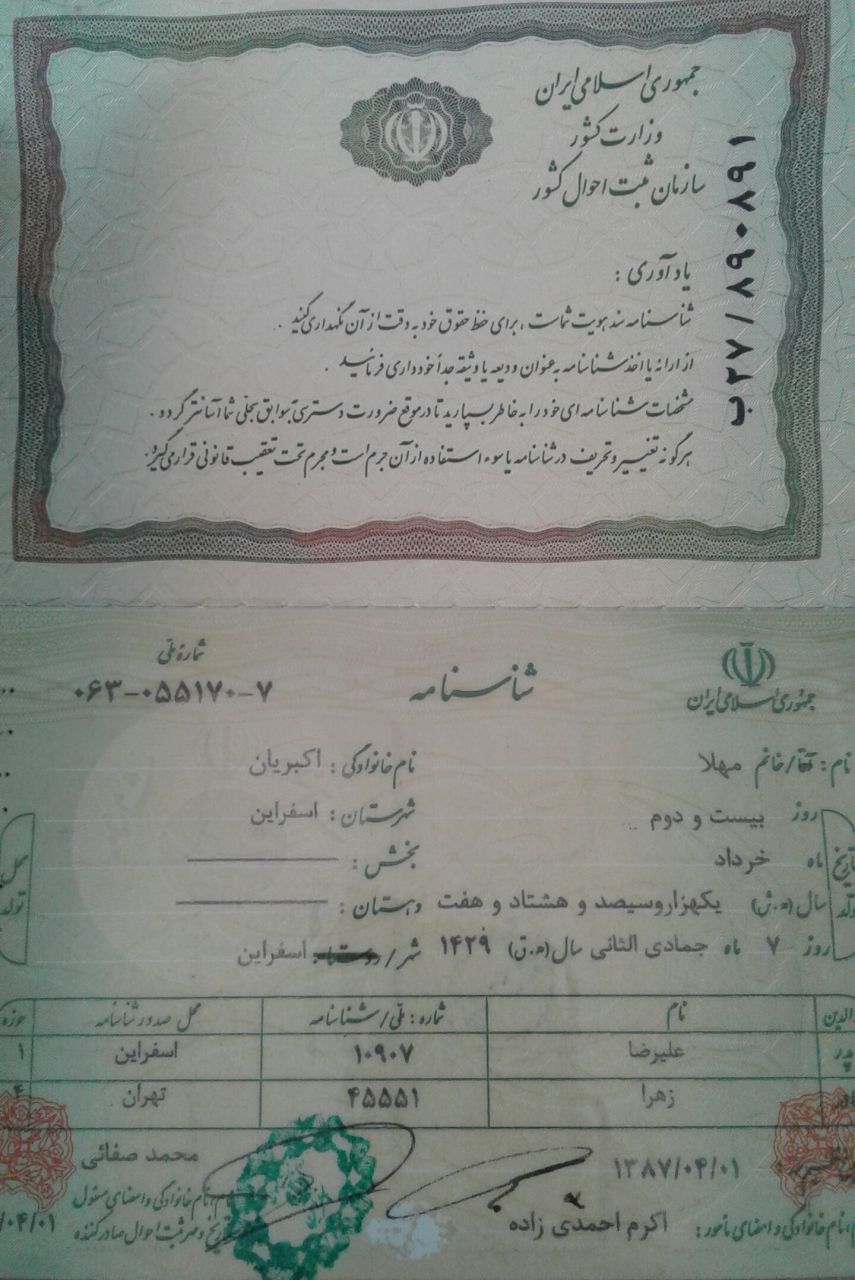 جمهوری اسلامی ایران
وزارت کشور
سازمان ثبت احوال کشور
ب ۲۷/۸۹۰۸۹۱
یادآوری :
شناسنامه سند هویت شماست ، برای حفظ حقوق خود به دقت از آن نگهداری کنید .
از ارائه یا اخذ شناسنامه به عنوان ودیعه یا وثیقه جداً خودداری فرمائید .
مشخصات شناسنامه ای خود را به خاطر بسپارید تا در موقع ضرورت دسترسی به سوابق سجلی شما آسانتر گردد .
هرگونه تغییر و تحریف در شناسنامه یا سوء استفاده از آن جرم است و مجرم تحت تعقیب قانونی قرار می گیرد .
جمهوری اسلامی ایران
شناسنامه
شماره ملی
۰۶۳-۰۵۵۱۷۰-۷
نام : آقا/خانم مهلا نام خانوادگی : اکبریان
روز بیست و دوم شهرستان : اسفراین
تاریخ ماه خرداد بخش :
تولد سال (ه.ش) یکهزاروسیصد و هشتاد و هفت دهستان :
محل تولد
روز ۷ ماه جمادی الثانی سال (ه.ق) ۱۴۲۹ شهر/روستا : اسفراین
والدین نام شماره : ملی/شناسنامه محل صدور شناسنامه حوزه
پدر علیرضا ۱۰۹۰۷ اسفراین ۱
زهرا ۴۵۵۵۱ تهران ۴
۱۳۸۷/۰۴/۰۱ محمد صفائی
نام خانوادگی و امضای مأمور : اکرم احمدی زاده
نام، نام خانوادگی و امضای مسئول
تاریخ و مهر ثبت احوال صادرکننده
/۰۴/۰۱